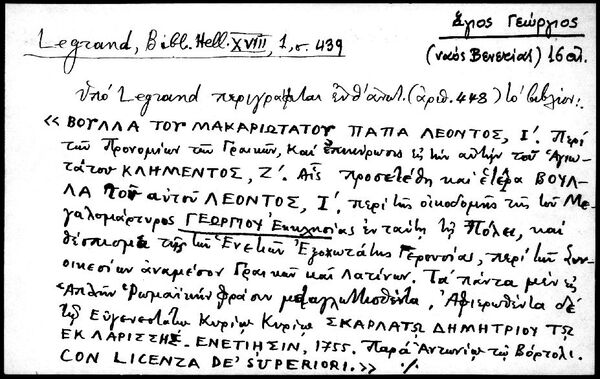 Ἅγιος Γεώργιος
Legrand, Bibl. Hell. XVIII, 1, σ. 439
(ναός Βενετίας) 16 αἰ.
Ὑπό Legrand περιγράφεται ἐνθ' ἀνωτ. (ἀριθ. 448) τό βιβλίον:
«ΒΟΥΛΛΑ ΤΟΥ ΜΑΚΑΡΙΩΤΑΤΟΥ ΠΑΠΑ ΛΕΟΝΤΟΣ, Ι΄. Περί
τῶν Προνομίων τῶν Γραικῶν, καί ἐπικύρωσις εἰς τήν αὐτήν τοῦ Ἁγιω-
τάτου ΚΛΗΜΕΝΤΟΣ, Ζ΄. Αἷς προσετέθη καί ἑτέρα ΒΟΥΛ-
ΛΑ τοῦ αὐτοῦ ΛΕΟΝΤΟΣ, Ι΄. περί τῆς οἰκοδομῆς τῆς τοῦ Με-
γαλομάρτυρος ΓΕΩΡΓΙΟΥ Ἐκκλησίας ἐν ταύτῃ τῇ Πόλει, καί
θέσπισμα τῆς τῶν Ἐνετῶν Ἐξοχωτάτης Γερουσίας, περί τῶν Συν-
οικεσίων ἀναμεσον Γραικῶν καί Λατίνων. Τά πάντα μέν εἰς
Ἁπλῆν Ῥωμαϊκήν φράσιν μεταγλωττισθέντα, Ἀφιερωθέντα δέ
τῷ Εὐγενεστάτῳ Κυρίῳ Κυρίῳ ΣΚΑΡΛΑΤῼ ΔΗΜΗΤΡΙΟΥ Τῼ
ΕΚ ΛΑΡΙΣΣΗΣ. ΕΝΕΤΙΗΣΙΝ, 1755. Παρά Ἀντωνίῳ τῷ Βόρτολι.
CON LICENZA DE' SUPERIORI.» ./.